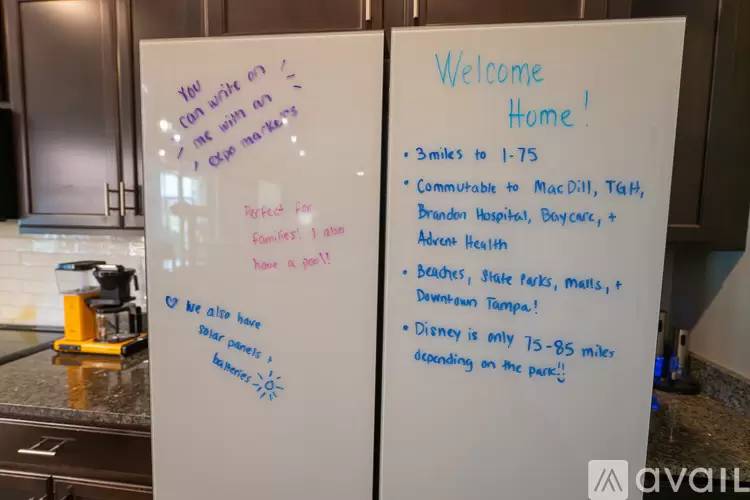 You
can write on
me with an
expo markers
Perfect for
families! I also
have a pool!!
We also have
solar panels +
batteries
Welcome
Home!
• 3 miles to I-75
• Commutable to MacDill, TGH,
Brandon Hospital, Baycare, +
Advent Health
• Beaches, State Parks, malls, +
Downtown Tampa!
• Disney is only 75-85 miles
depending on the park!!
avail